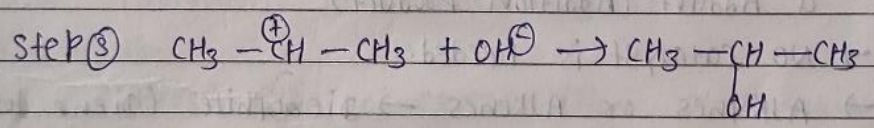 Step ③ CH₃ – C⊕H – CH₃ + OH⊖ → CH₃ – CH – CH₃
OH